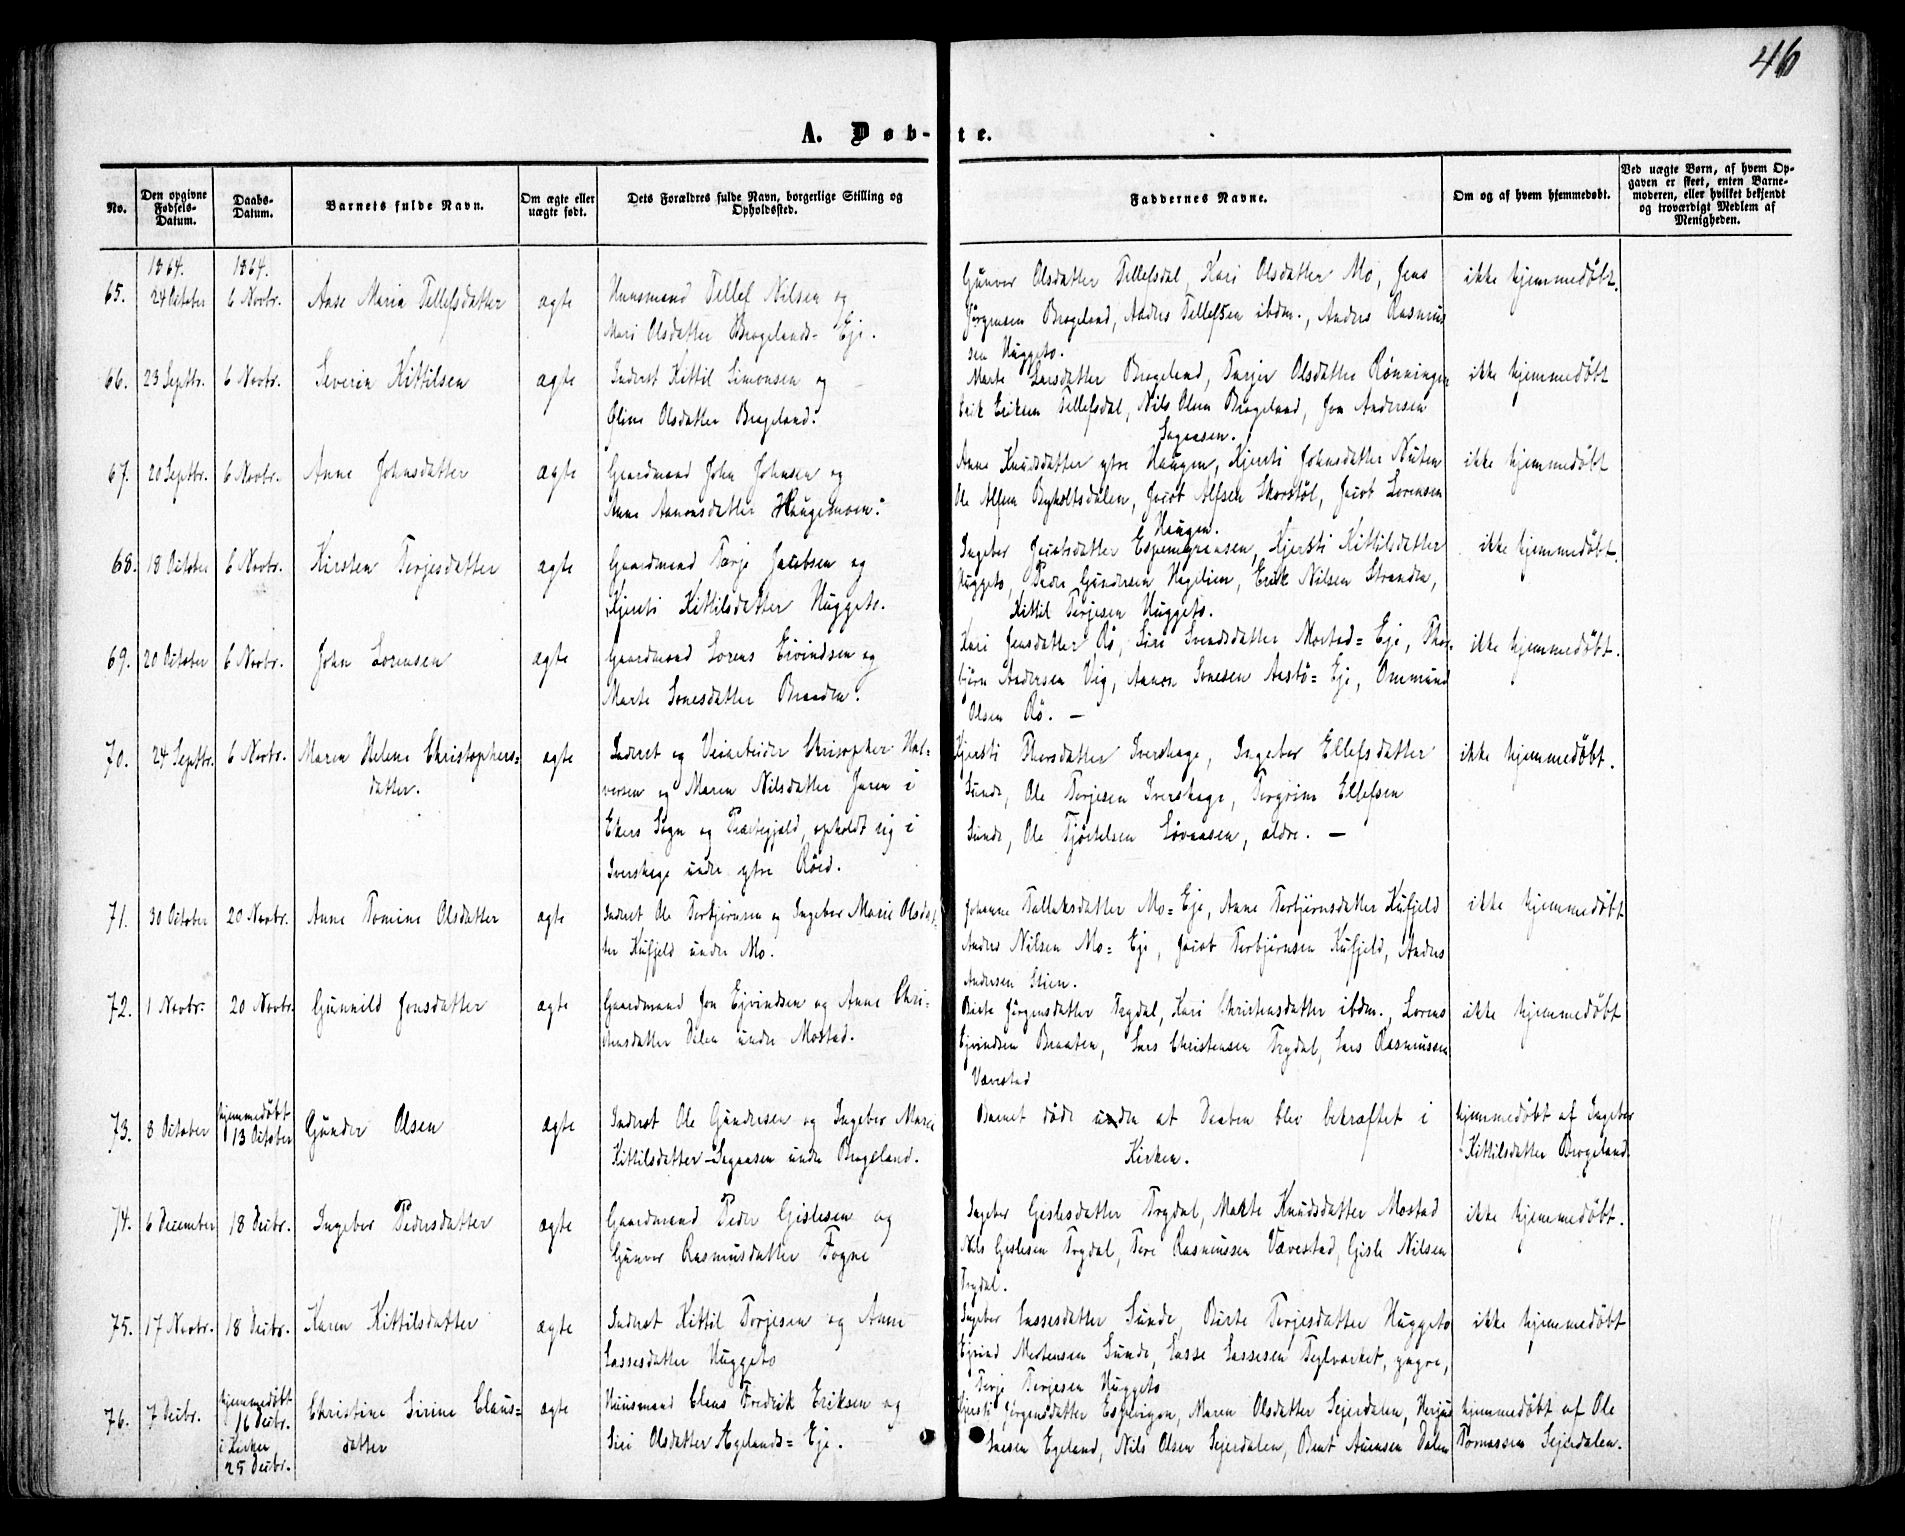 46
A. Døb-te.
No.
Den opgivne Fødsels-Datum.
Daabs-Datum.
Barnets fulde Navn.
Om ægte eller uægte født.
Dets Forældres fulde Navn, borgerlige Stilling og Opholdssted.
Faddernes Navne.
Om og af hvem hjemmedøbt.
Ved uægte Børn, af hvem Opgaven er skeet, enten Barnemoderen, eller hvilket bekjendt og troværdigt Medlem af Menigheden.
1864. 1864.
65. 24 October 6 Novbr. Aase Maria Tellefsdatter ægte Huusmand Tellef Nilsen og
Mari Olsdatter Brogelands= Eje.
Gunvor Olsdatter Tellefsdal, Kari Olsdatter Mo, Jens
Jørgensen Brogeland, Anders Tellefsen ibdm., Anders Rasmus
sen Huggeto.
ikke hjemmedøbt.
66. 23 Septbr. 6 Novbr. Severin Kittilsen ægte Inderst Kittil Simonsen og
Oline Olsdatter Brogeland.
Marte Larsdatter Brogeland, Tarjer Olsdatter Rønningen
Erik Eriksen Tellefsdal, Nils Olsen Brogeland, Jon Andersen
Sagaasen.
ikke hjemmedøbt
67. 20 Septbr. 6 Novbr. Anne Johnsdatter ægte Gaardmand John Johnsen og
Anne Aanonsdatter Haugemoen.
Anne Knudsdatter ytre Haugen, Kjersti Johnsdatter Nuten
Ole Alfsen Byholtsdalen, Jacob Alfsen Skarstøl, Jacob Lorensen
Haugen.
ikke hjemmedøbt
68. 18 October 6 Novbr. Kirsten Terjesdatter ægte Gaardmand Terje Jacobsen og
Kjersti Kittilsdatter Huggeto.
Ingebor Jacobsdatter Espemgrænsen, Kjersti Kittilsdatter
Huggeto, Peder Gundersen Hegelien, Erik Nilsen Stranden,
Kittil Terjesen Huggeto.
ikke hjemmedøbt.
69. 20 October 6 Novbr. John Lorensen ægte Gaardmand Lorens Eivindsen og
Marte Tonesdatter Braaden.
Kari Jensdatter Rø, Siri Svendsdatter Mostad= Eje, Thor-
bjørn Andersen Vig, Aanon Tonesen Aastø= Eje, Ommund
Olsen Rø. —
ikke hjemmedøbt.
70. 24 Septbr. 6 Novbr. Maren Helene Christophers=
datter.
ægte Inderst og Veiarbeider Chrisopher Hal-
vorsen og Maren Nilsdatter Juren i
Ekers Sogn og Præstegjeld, opholdt sig i
Iverskage under ytre Røed.
Kjersti Thorsdatter Iverskage, Ingebor Ellefsdatter
Sunde, Ole Terjesen Iverskage, Torgrim Ellefsen
Sunde, Ole Tjøstelsen Løvaasen, ældre. —
ikke hjemmedøbt.
71. 30 October 20 Novbr. Anne Tomine Olsdatter ægte Inderst Ole Torbjørnsen og Ingebor Marie Olsdat-
ter Kufjeld under Mo.
Johanne Tallaksdatter Mo= Eje, Anne Torbjørnsdatter Kufjeld
Anders Nilsen Mo= Eje, Jacob Torbjørnsen Kufjeld, Anders
Andersen Stien.
ikke hjemmedøbt
72. 1 Novbr. 20 Novbr. Gunnild Jonsdatter ægte Gaardmand Jon Ejvindsen og Anne Chri-
stensdatter Dalen under Mostad.
Berte Jørgensdatter Trydal, Kari Christensdatter ibdm., Lorens
Ejvindsen Braaten, Lars Christensen Trydal, Lars Rasmussen
Vævestad
ikke hjemmedøbt
73. 8 October hjemmedøbt
13 October
Gunder Olsen ægte Inderst Ole Gundersen og Ingebor Marie
Kittilsdatter Sagaasen under Brogeland.
Barnet døde inden at Daaben blev bekræftet i
Kirken.
hjemmedøbt af Ingebor
Kittilsdatter Brogeland.
74. 6 December 18 Decbr. Ingebor Pedersdatter ægte Gaardmand Peder Gislesen og
Gunvor Rasmusdatter Fogne
Ingebor Gislesdatter Trydal, Marte Knudsdatter Mostad
Nils Gislesen Trydal, Tore Rasmussen Vævestad, Gisle Nilsen
Trydal.
ikke hjemmedøbt.
75. 17 Novbr. 18 Decbr. Karen Kittilsdatter ægte Inderst Kittil Terjesen og Anne
Lassesdatter Huggeto
Ingebor Lassesdatter Sunde, Birte Terjesdatter Huggeto
Ejvind Mortensen Sunde, Lasse Lassesen Teglværket, yngre,
Terje Terjesen Huggeto
ikke hjemmedøbt
76. 7 Decbr. hjemmedøbt
16 Decbr.
i Kirken
25 Decbr.
Christine Sirine Claus=
datter
ægte Huusmand Claus Fredrik Eriksen og
Siri Olsdatter Egelands= Eje.
Kjersti Jørgensdatter Espevigen, Maren Olsdatter Sejerdalen, Nerjus
Egeland, Nils Olsen Sejerdalen, Bent Dalen
hjemmedøbt af Ole
Tomassen Sejerdalen.